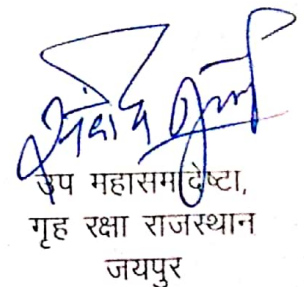 उप महासमादेष्टा,
गृह रक्षा राजस्थान
जयपुर